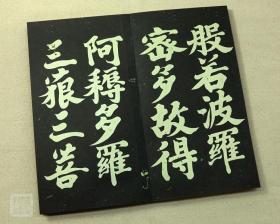 般若波羅
蜜多故得
阿耨多羅
三藐三菩